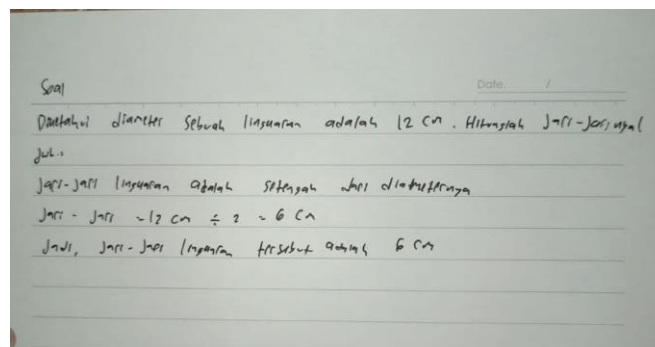 Soal
Date. /
Diketahui diameter sebuah lingkaran adalah 12 cm. Hitunglah Jari-Jarinya!
Jwb.:
Jari-Jari lingkaran adalah setengah dari diameternya
Jari - Jari = 12 cm ÷ 2 = 6 cm
Jadi, Jari-Jari lingkaran tersebut adalah 6 cm